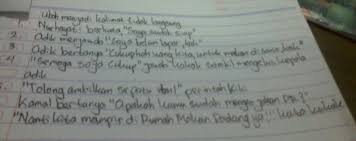 Ubah menjadi kalimat tidak langsung
1. Nurhayati berkata "Saya sudah siap"
2. Adik menjawab "Saya belum lapar kak"
3. Adik bertanya "Cukupkah uang kita untuk makan di sana kak"
4. "Semoga saja cukup" jawab kakak sambil kepala
adik
"Tolong ambilkan sepatu itu" perintah
Kamal bertanya "Apakah kamu sudah mengerjakan PR?"
"Nanti kita mampir di Rumah Makan Padang ya" kata kakak